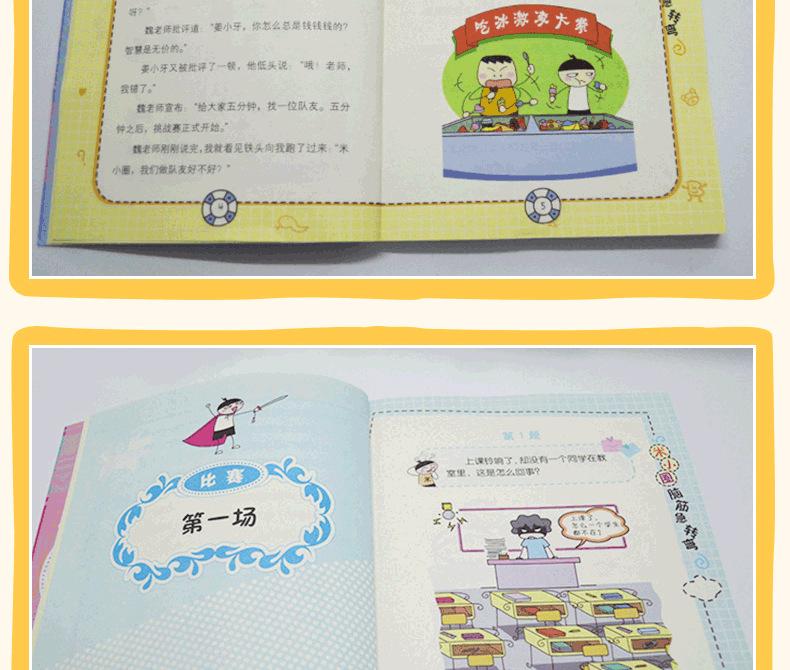 呀？”
魏老师批评道：“姜小牙，你怎么总是钱钱钱的？
智慧是无价的。”
姜小牙又被批评了一顿，他低头说：“哦！老师，
我错了。”
魏老师宣布：“给大家五分钟，找一位队友。五分
钟之后，挑战赛正式开始。”
魏老师刚刚说完，我就看见铁头向我跑了过来：“米
小圈，我们做队友好不好？”
4
吃冰激凌大赛
急转弯
5
比赛
第一场
第1题
上课铃响了，却没有一个同学在教
室里，这是怎么回事？
米
上课了，
怎么一个学生
都不在？
米小圈脑筋急转弯